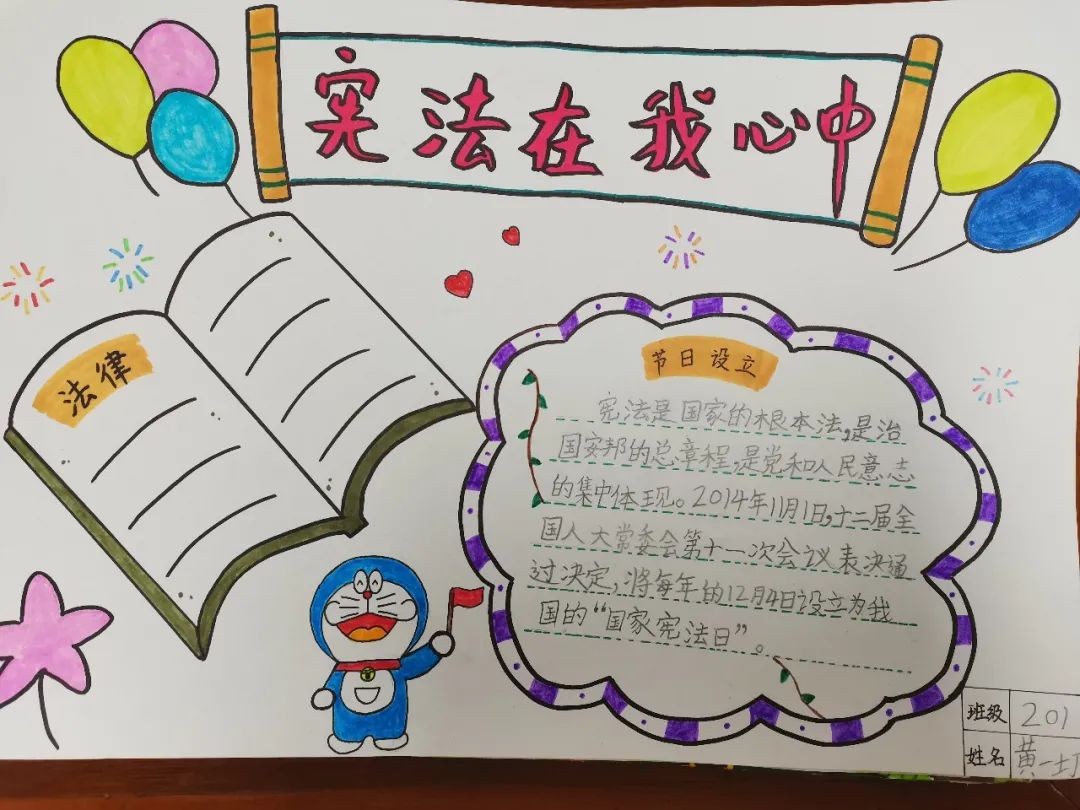 宪法在我心中
法律
节日设立
宪法是国家的根本法,是治
国安邦的总章程,是党和人民意志
的集中体现。2014年11月1日,十二届全
国人大常委会第十一次会议表决通
过决定,将每年的12月4日设立为我
国的“国家宪法日”。
班级 201
姓名 黄一